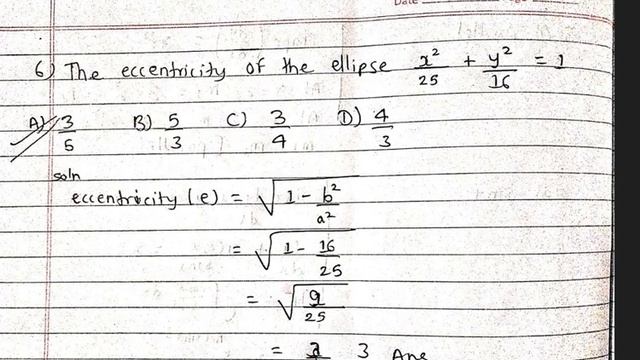 Date
6) The eccentricity of the ellipse x²/25 + y²/16 = 1
A) 3/5 B) 5/3 C) 3/4 D) 4/3
soln
eccentricity (e) = √(1 - b²/a²)
= √(1 - 16/25)
= √(9/25)
= 3 Ans